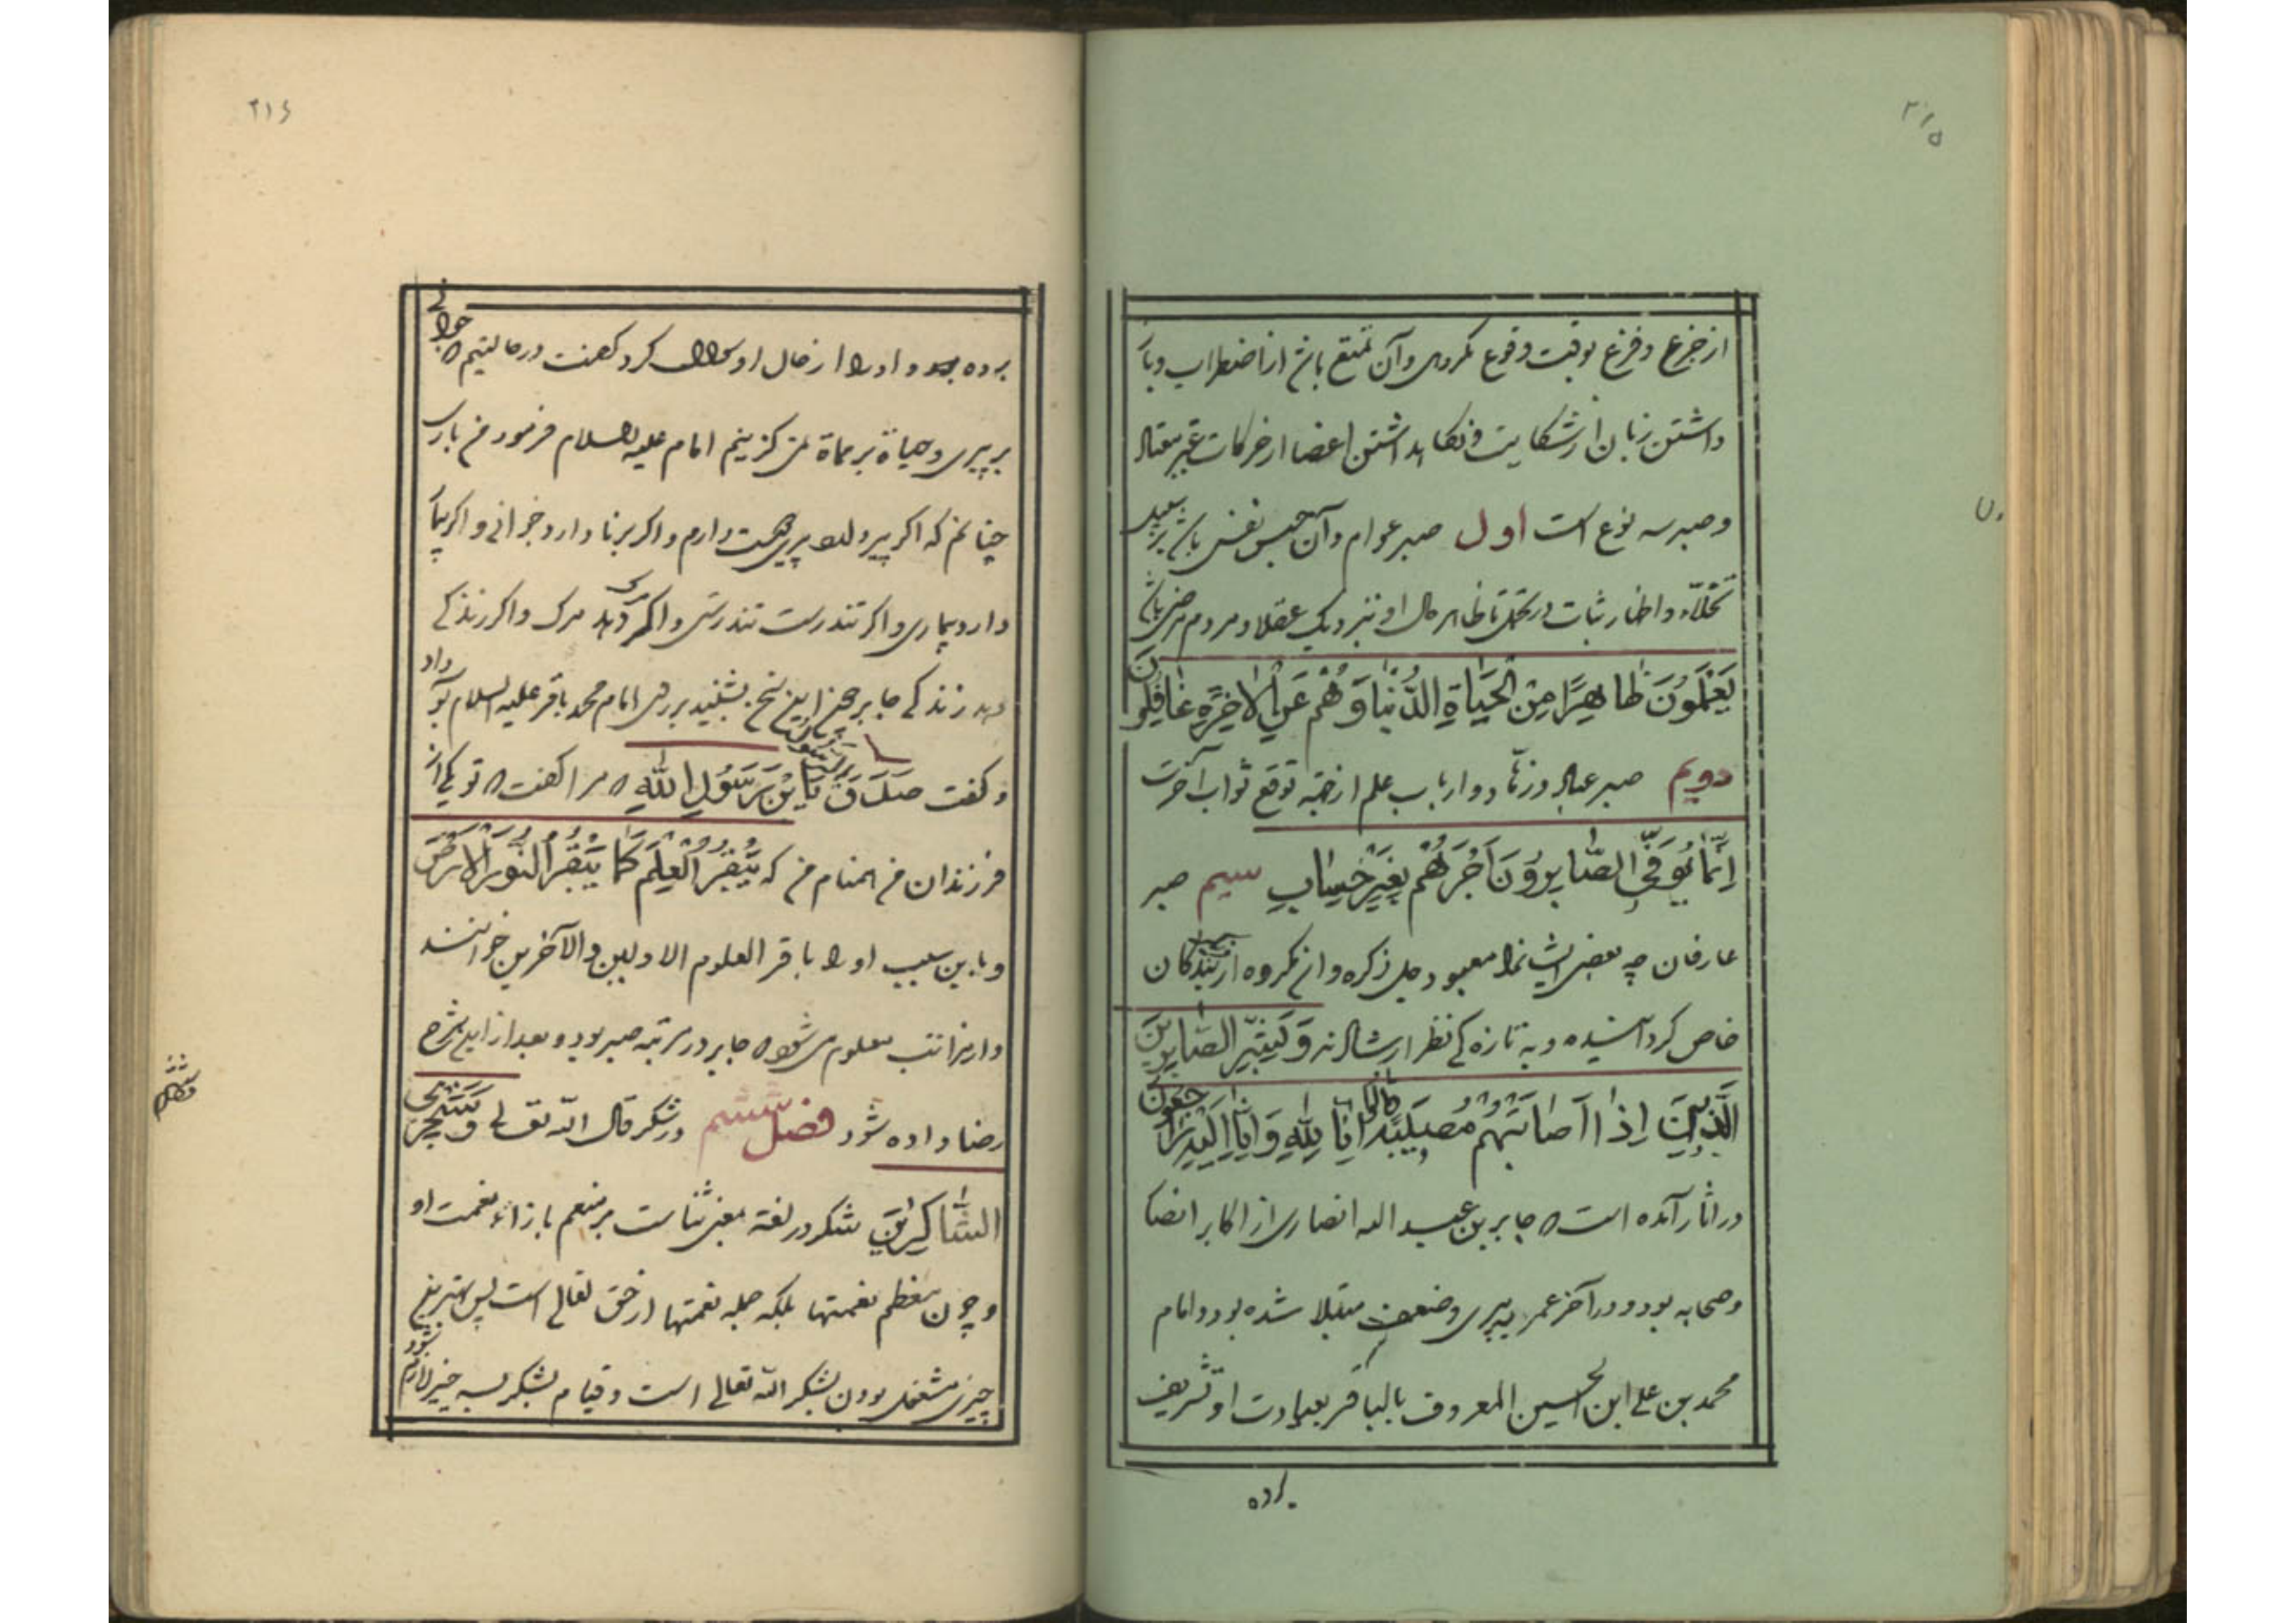 ۳۱۵
از جزع و فزع بوقت وقوع مکروهی و آن تمتع باشد از اضطراب و باز
داشتن زبان از شکایت و نکاه داشتن اعضا از حرکات غیر معتاد
و صبر سه نوع است اول صبر عوام و آن حبس نفس باشد بر سبیل
تجلّد و اظهار ثبات در تحمل تا ظاهر حال او بنزدیک عقلا و مردم مرضی باشد
يَعْلَمُونَ ظَاهِرًا مِنَ الْحَيَاةِ الدُّنْيَا وَهُمْ عَنِ الْآخِرَةِ غَافِلُونَ
دویم صبر عباد و زهّاد و ارباب علم از جهة توقع ثواب آخرت
اِنَّمَا يُوَفَّى الصَّابِرُونَ اَجْرَهُمْ بِغَيْرِ حِسَابٍ سیم صبر
عارفان چه بعضی ایشانرا معبود جل ذکره و از مکروه از بندکان
خاص کردانیده و به تازه کی نظر ارشاد اند وَبَشِّرِ الصَّابِرِينَ
الَّذِينَ اِذَا اَصَابَتْهُمْ مُصِيبَةٌ قَالُوا اِنَّا لِلّٰهِ وَاِنَّا اِلَيْهِ رَاجِعُونَ
در آثار آمده است که جابر بن عبد الله انصاری از اکابر انصا
و صحابه بود و در آخر عمر به پیری و ضعف مبتلا شده بود و امام
محمد بن علی ابن الحسین المعروف بالباقر بعیادت او تشریف
برده
۲۱۶
برده بود و او را از حال او سوال کرد کفت در حالتیم که جوانی
بر پیری و حیاة بر مماة نمی کزینم امام علیه السلام فرمود من باری
چنانم که اکر پیر دارد پیری دوست دارم و اکر برنا دارد جوانی و اکر بیمار
دارد بیماری و اکر تندرست تندرستی و اکر مرک دهد مرک و اکر زندکی
دهد زندکی جابر چون این سخن بشنید بر روی امام محمد باقر علیه السلام بوسه داد
و کفت صَدَقَ يَا بْنَ رَسُولِ اللّٰهِ که مرا کفت که تو یکی از
فرزندان من همنام من که يَبْقُرُ الْعِلْمَ كَمَا يَبْقُرُ الثَّوْرُ الْاَرْضَ
و باین سبب او را باقر العلوم الاولین و الآخرین خوانند
و از مراتب معلوم می شود که جابر در مرتبه صبر بود و بعد از این شرح
رضا داده شود فصل ششم در شکر قال الله تعالی وَسَنَجْزِي
الشَّاكِرِينَ شکر در لغة معنی ثناست بر منعم بازاء نعمت او
و چون معظم نعمتها بلکه جمله نعمتها از حق تعالی است پس بهترین
چیزی مشغول بودن بشکر الله تعالی است و قیام بشکر بسه چیز لازم شود